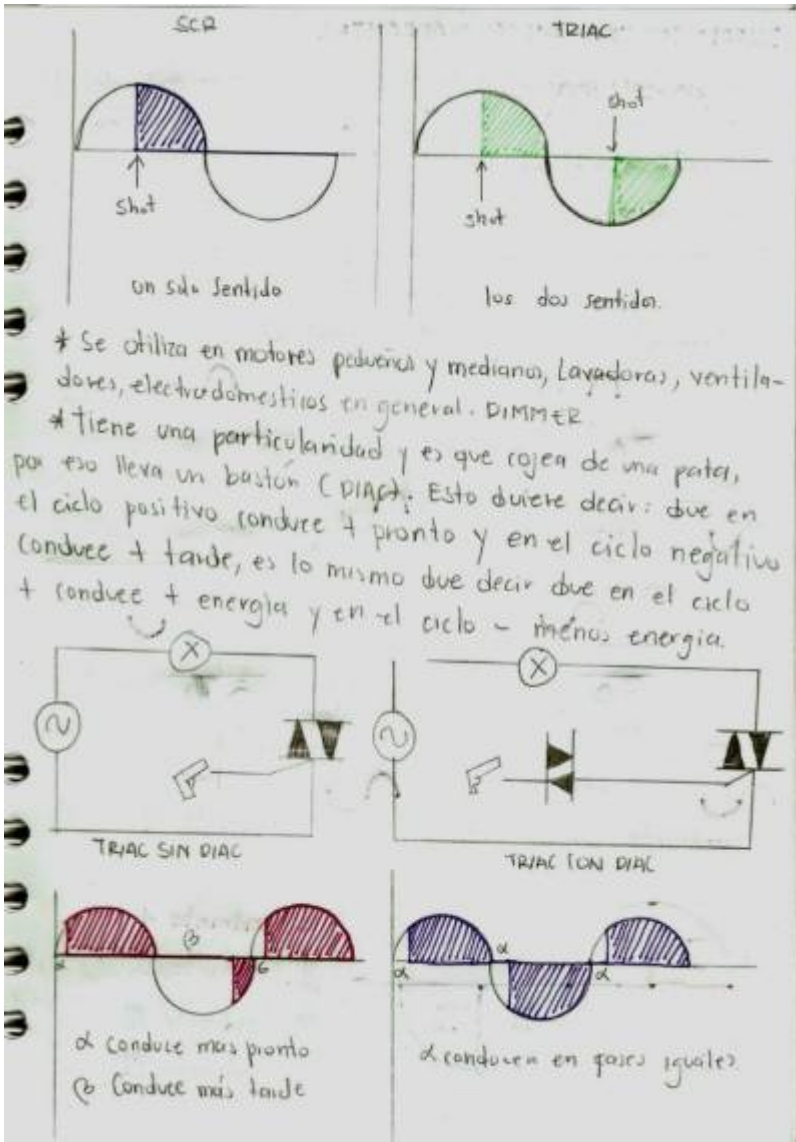 SCR
TRIAC
shot
shot
shot
un solo sentido
los dos sentidos.
* Se utiliza en motores pequeños y medianos, Lavadoras, ventila-
dores, electrodomesticos en general. DIMMER
* Tiene una particularidad y es que cojea de una pata,
por eso lleva un bastón (DIAC). Esto quiere decir: que en
el ciclo positivo conduce + pronto y en el ciclo negativo
conduce + tarde, es lo mismo que decir que en el ciclo
+ conduce + energia y en el ciclo - menos energia.
X
X
TRIAC SIN DIAC
TRIAC CON DIAC
β
α
α
α
α
α conduce mas pronto
β Conduce más tarde
α conducen en fases iguales